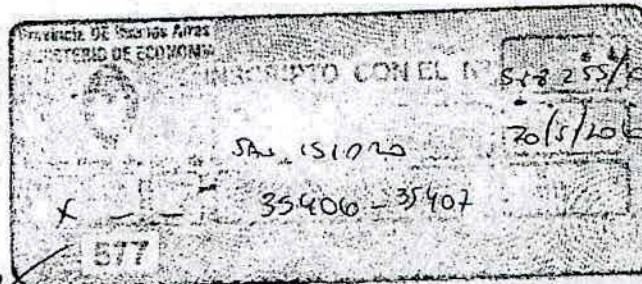 Provincia DE Buenos Aires
MINISTERIO DE ECONOMIA
INSCRIPTO CON EL Nº
20/5/20
SAN ISIDRO
35406 - 35407
X - -
577